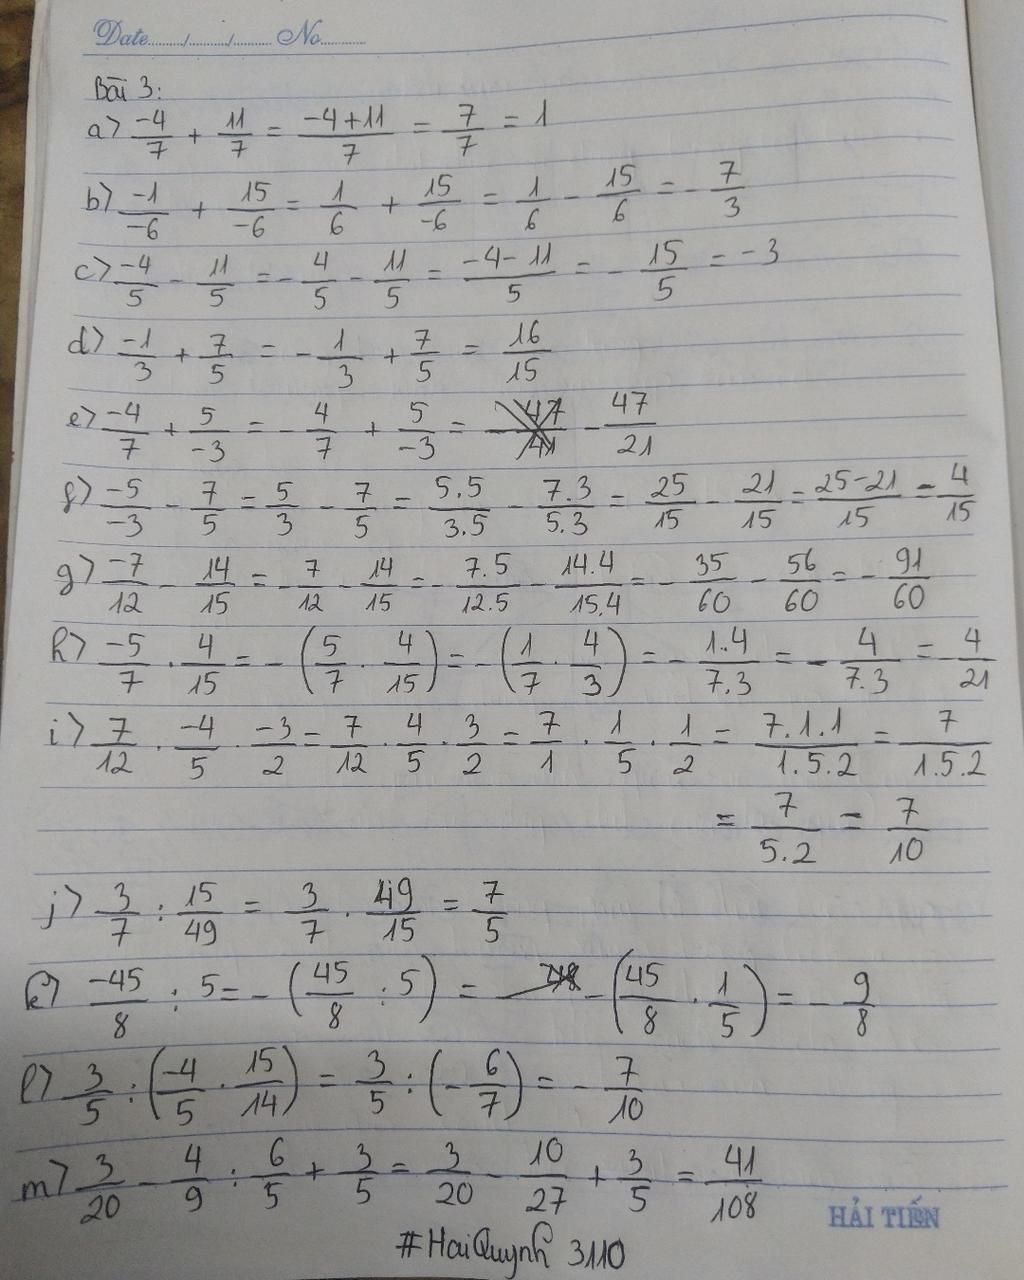 Date......../......../........ No..........
Bài 3:
a> -4/7 + 11/7 = -4+11/7 = 7/7 = 1
b> -1/-6 + 15/-6 = 1/6 + 15/-6 = 1/6 - 15/6 = - 7/3
c> -4/5 - 11/5 = - 4/5 - 11/5 = -4-11/5 = - 15/5 = -3
d> -1/3 + 7/5 = - 1/3 + 7/5 = 16/15
e> -4/7 + 5/-3 = - 4/7 + 5/-3 = - 47/21
f> -5/-3 - 7/5 = 5/3 - 7/5 = 5.5/3.5 - 7.3/5.3 = 25/15 - 21/15 = 25-21/15 = 4/15
g> -7/12 - 14/15 = - 7/12 - 14/15 = - 7.5/12.5 - 14.4/15.4 = - 35/60 - 56/60 = - 91/60
h> -5/7 . 4/15 = - (5/7 . 4/15) = - (1/7 . 4/3) = - 1.4/7.3 = - 4/7.3 = - 4/21
i> 7/12 . -4/5 . -3/2 = 7/12 . 4/5 . 3/2 = 7/1 . 1/5 . 1/2 = 7.1.1/1.5.2 = 7/1.5.2
= 7/5.2 = 7/10
j> 3/7 : 15/49 = 3/7 . 49/15 = 7/5
k> -45/8 : 5 = - (45/8 : 5) = - (45/8 . 1/5) = - 9/8
l> 3/5 : (-4/5 . 15/14) = 3/5 : (- 6/7) = - 7/10
m> 3/20 - 4/9 : 6/5 + 3/5 = 3/20 - 10/27 + 3/5 = 41/108
HẢI TIẾN
#HaiQuynh 3110